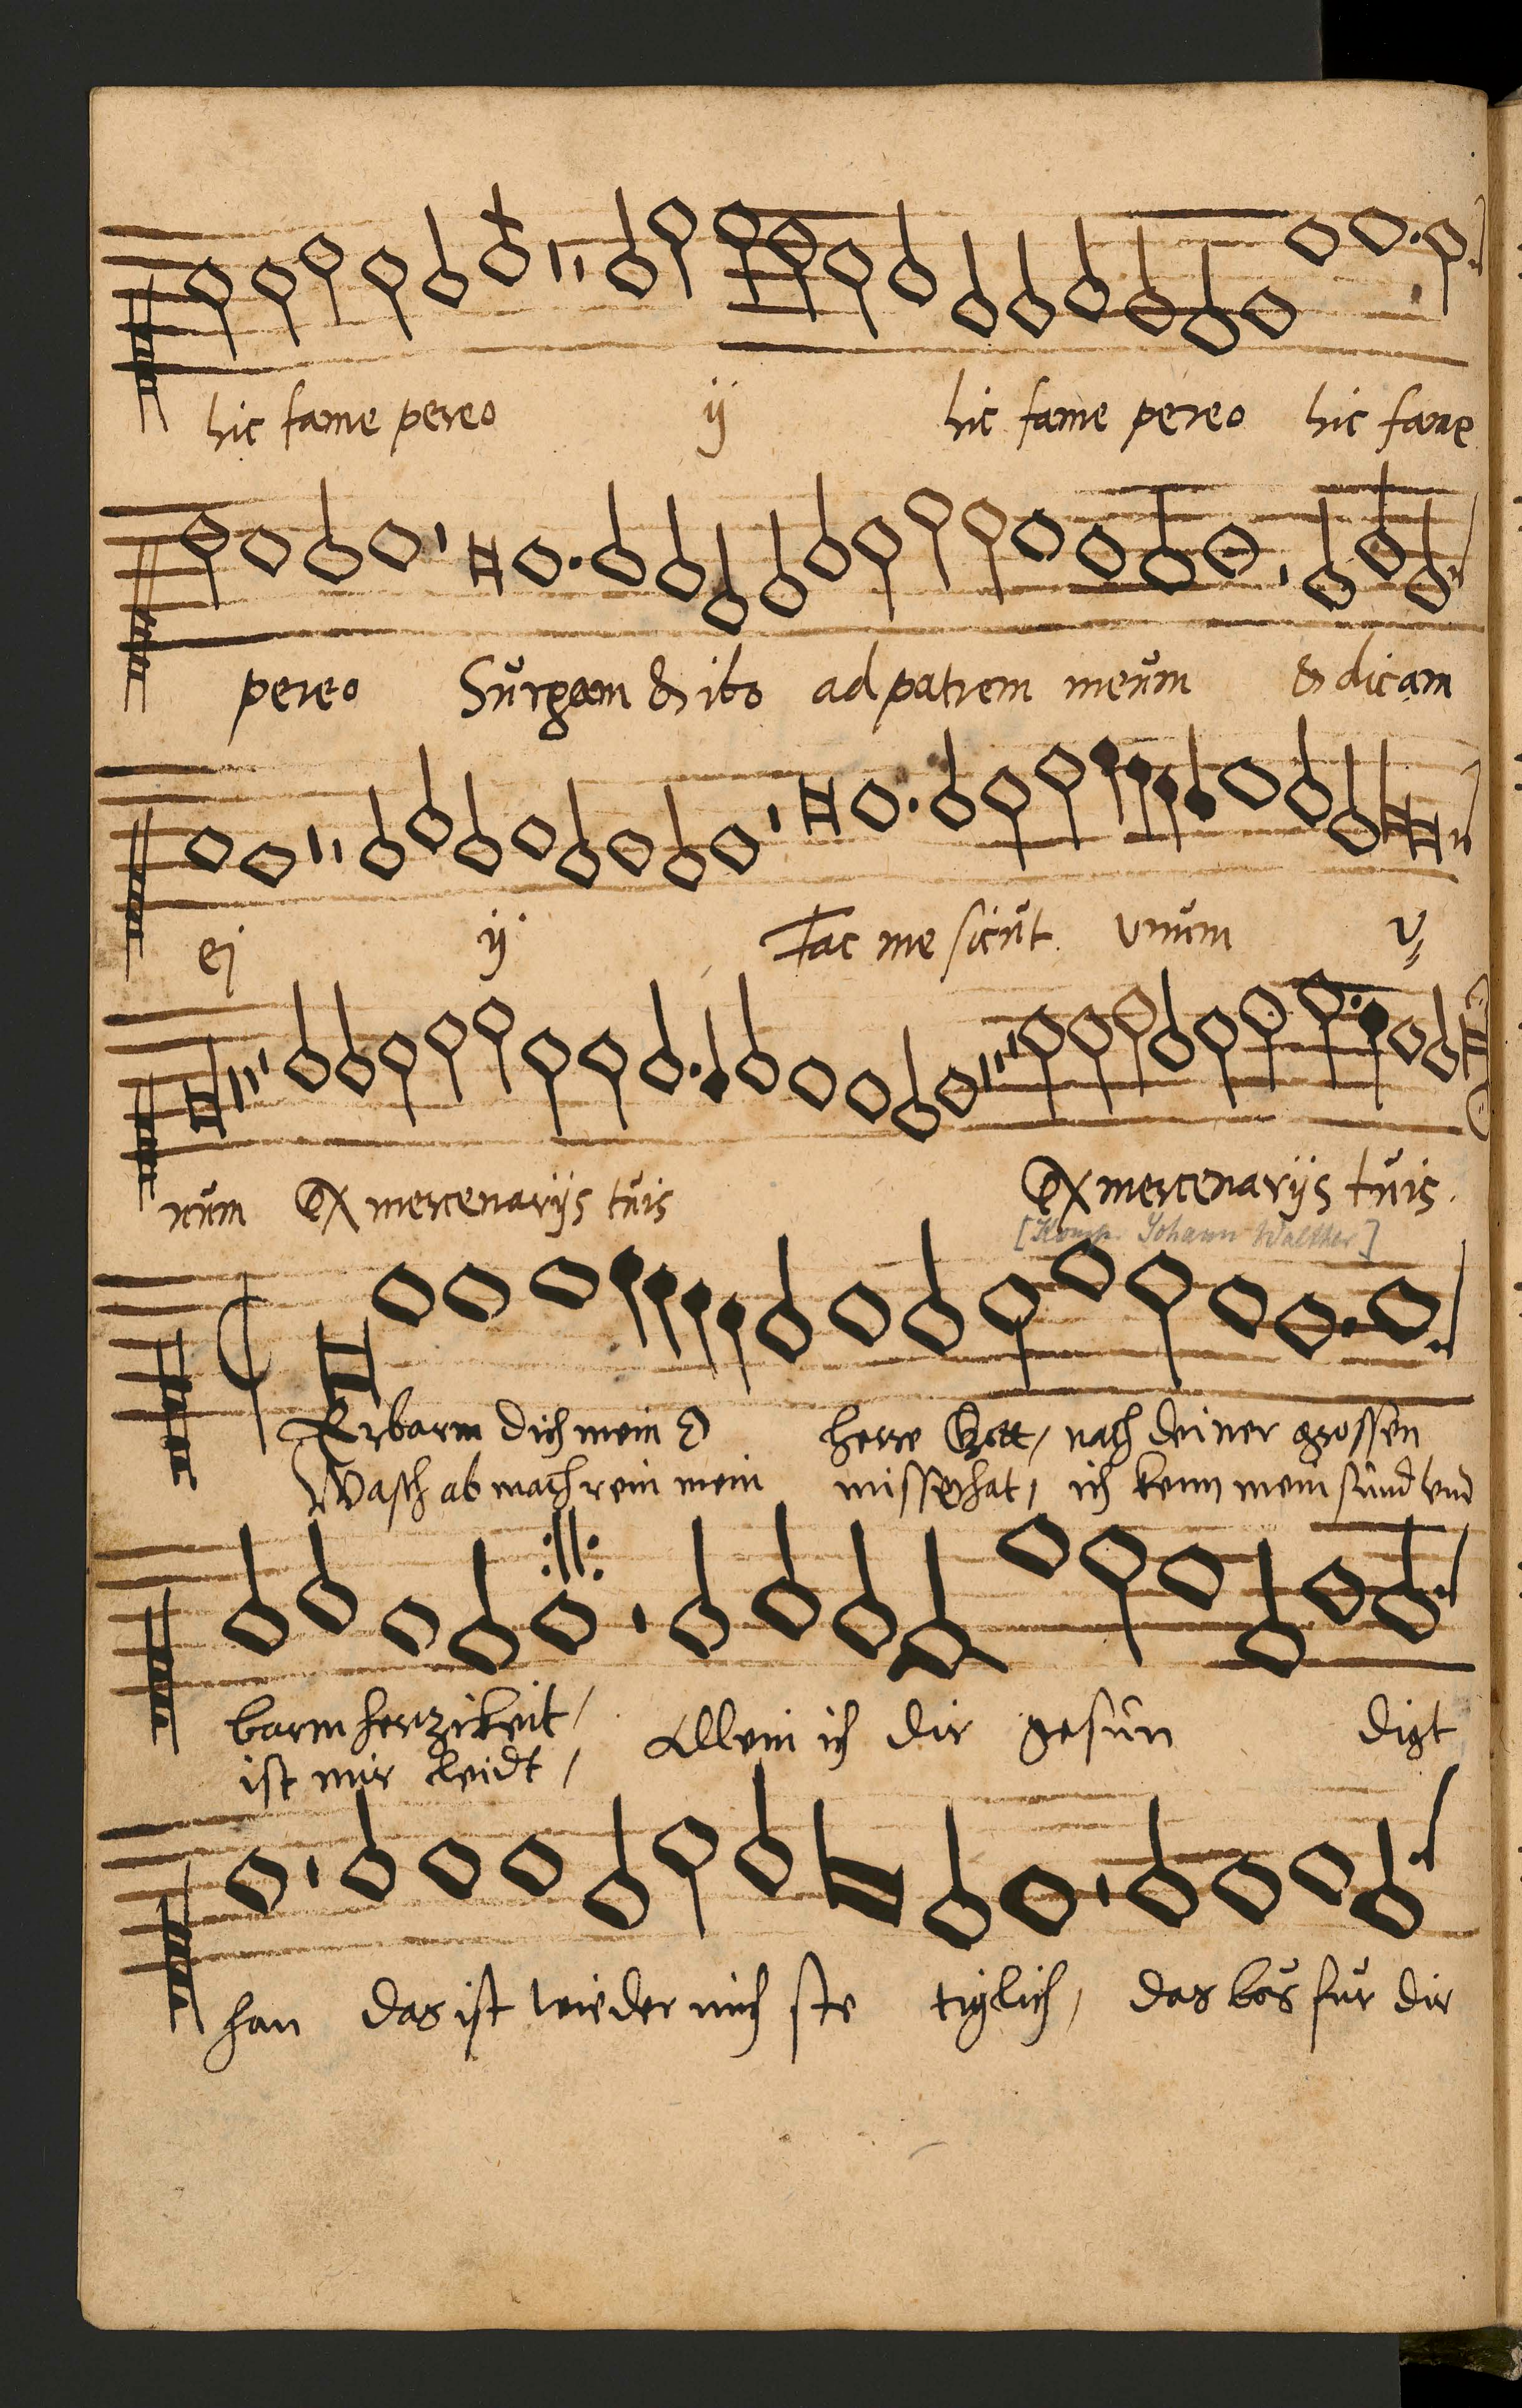 hic fame pereo ij hic fame pereo hic fame
pereo Sŭrgam & ibo ad patrem meŭm & dicam
ej ij Fac me sicŭt vnŭm v
nŭm Ex mercenarijs tŭis Ex mercenarijs tŭis.
[Komp. Johann Walther]
Erbarm dich mein O herre Gott, nach deiner grossen
Wasch ab mach rein mein missethat, ich kenn mein sünd vnd
barmhertzikeit, Allein ich dir gesün digt
ist mir leidt,
han das ist wieder mich ste tiglich, das bös für dir